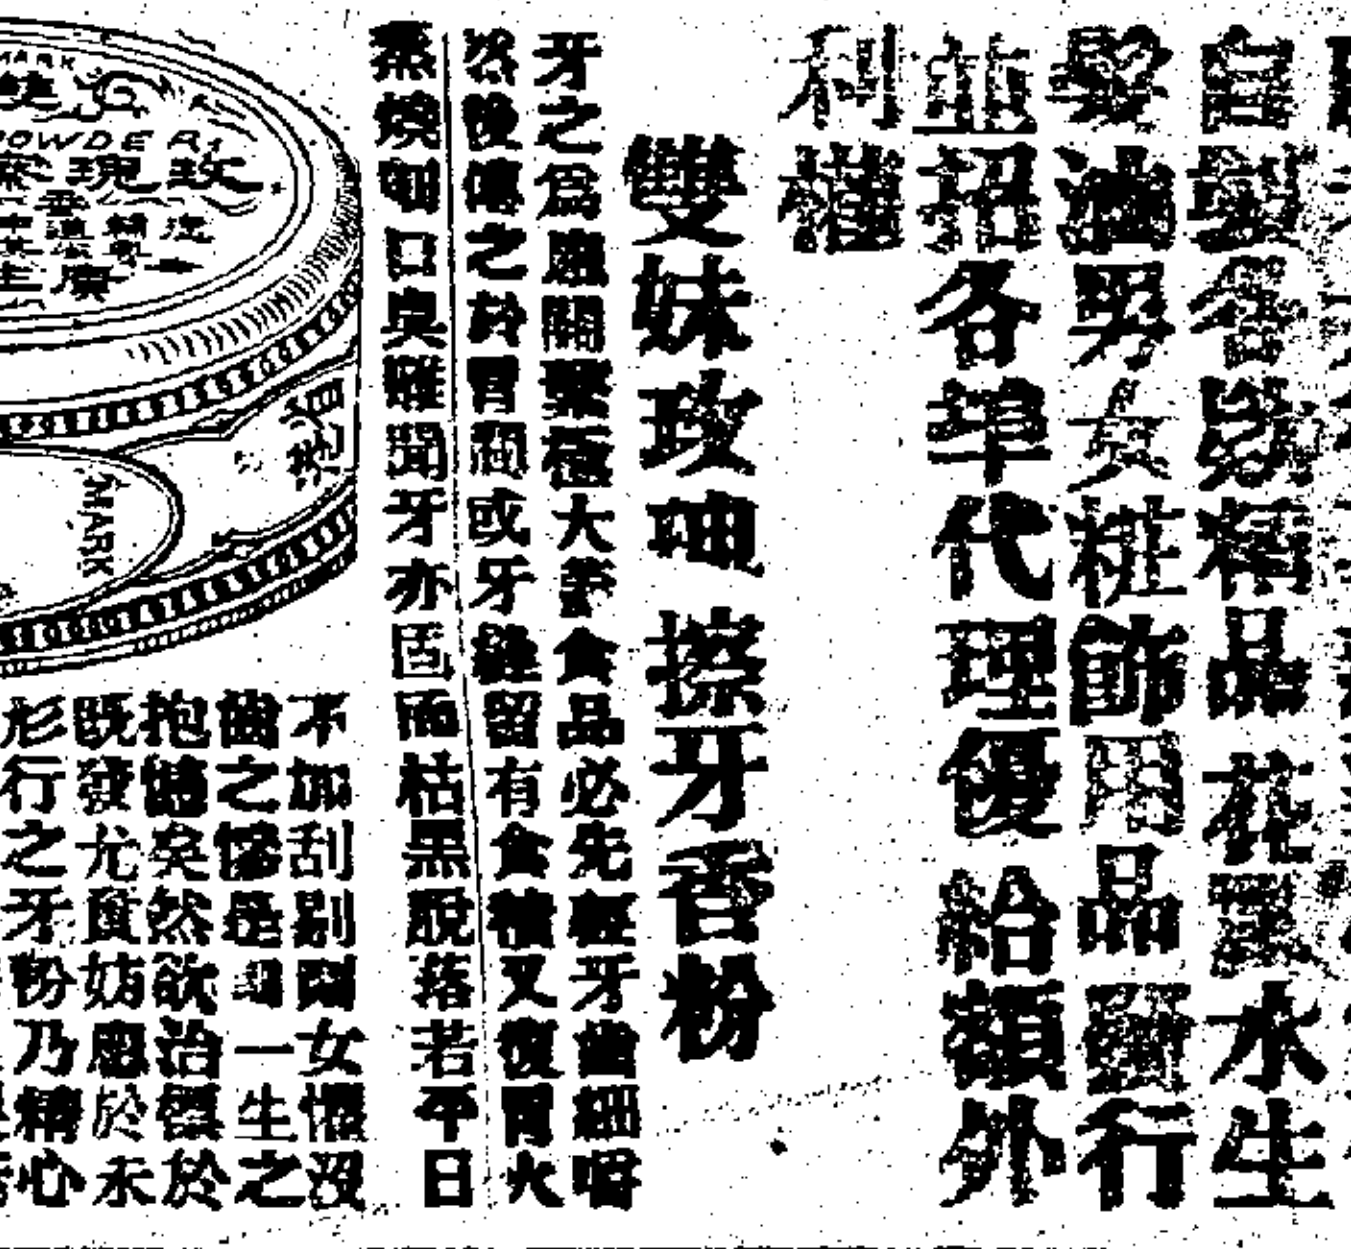 自製各款精品花露水生
髮油男女粧飾用品發行
並招各埠代理優給額外
利權
雙妹玫瑰擦牙香粉
牙之為應關繫極大養食品必先經牙齒細嚼
然後傳之於胃間或牙縫留有食積又復胃火
熏燒則口臭難聞牙亦固而枯黑脫落若平日
不加刮剔閨女懷沒
齒之慘是為一生之
抱憾矣然欲治標於
既發尤貴妨患於未
形行之牙粉乃精心
MARK
POWDER
玫瑰
廣生
MARK